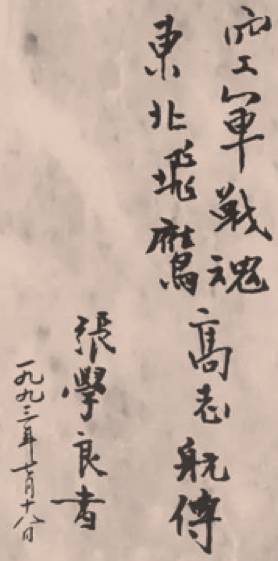 空軍戰魂高志航傳
東北飛鷹
張學良書
一九九三年月十八日